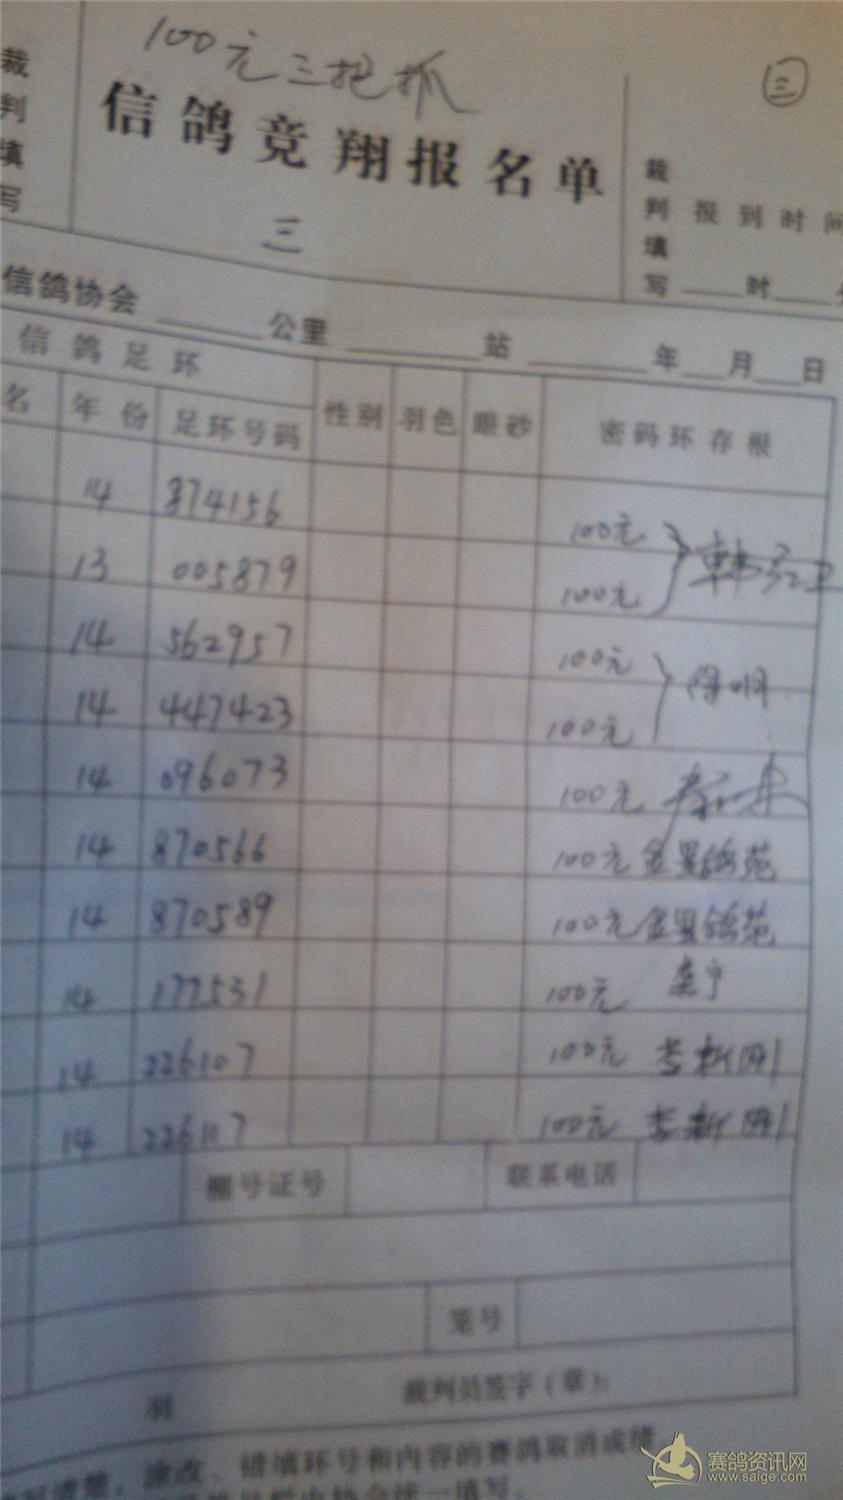 100元三把抓
三
裁判填写
信鸽竞翔报名单
三
裁判填写
报到时间
时
信鸽协会 公里 站 年 月 日
信鸽足环
名 年份 足环号码 性别 羽色 眼砂 密码环存根
14 874156 100元
13 005879 100元
14 562957 100元
14 447423 100元
14 096073 100元
14 870566 100元
14 870589 100元
14 177531 100元
14 226107 100元 李新刚
14 226107 100元 李新刚
棚号证号 联系电话
笼号
羽 裁判员签字(章):
写清楚,涂改、错填环号和内容的赛鸽取消成绩。
由协会统一填写。
赛鸽资讯网
www.saige.com